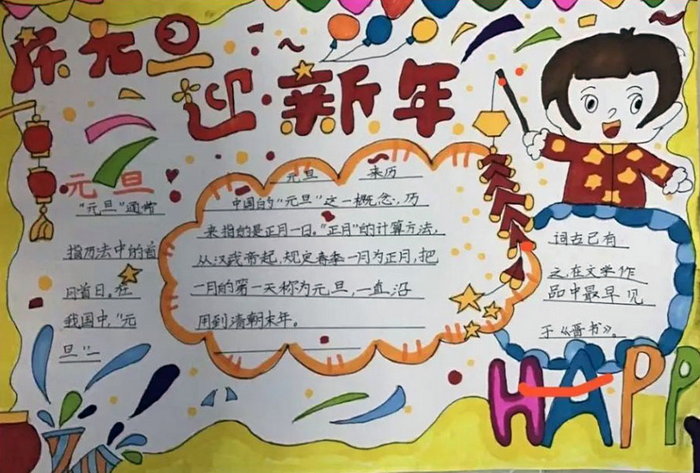 庆元旦
迎新年
元旦
"元旦"通常
指历法中的首
月首日。在
我国中,"元
旦"一
元旦 来历
中国的"元旦"这一概念,历
来指的是正月一日。"正月"的计算方法,
从汉武帝起,规定春季一月为正月,把
一月的第一天称为元旦,一直沿
用到清朝末年。
词古已有
之,在文学作
品中最早见
于《晋书》。
HAPP